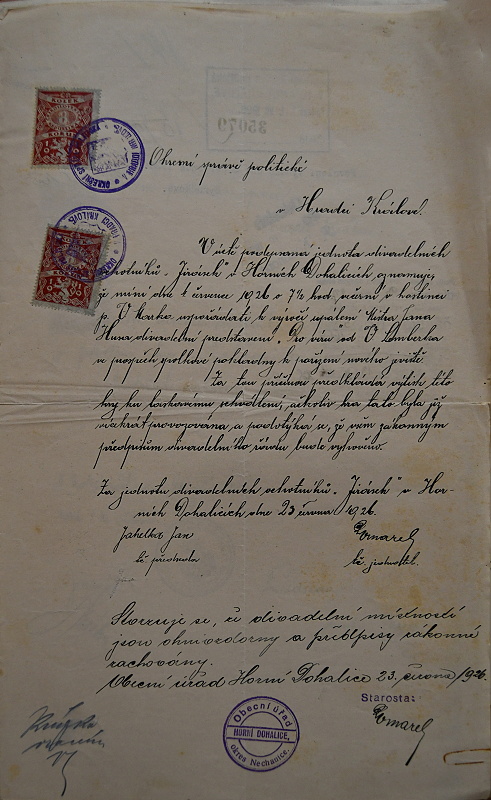 35079
Okresní správě politické
v Hradci Králové.
V úctě podepsaná jednota divadelních
ochotníků „Jirásek" v Horních Dohalicích oznamuje,
že míní dne 1 července 1926 o 7½ hod. večerní v hostinci
p. V. uspořádati k výročí upálení Mistra Jana
Husa divadelní představení „Pro víru" od
ve prospěch spolkové pokladny k pořízení nového jeviště.
Za tou příčinou předkládá výtisk této
hry ku laskavému schválení, ačkoliv hra tato byla již
provozována a podotýká se, že všem zákonným
předpisům divadelního řádu bude vyhověno.
Za jednotu divadelních ochotníků „Jirásek" v Hor-
ních Dohalicích dne 23 června 1926.
Jahelka Jan
t. č. předseda
t. č. jednatel.
Stvrzuje se, že divadelní místnosti
jsou ohnivzdorny a předpisy zákonné
zachovány.
Obecní úřad Horní Dohalice 23. června 1926.
Starosta:
Obecní úřad
HORNÍ DOHALICE,
okres Nechanice.